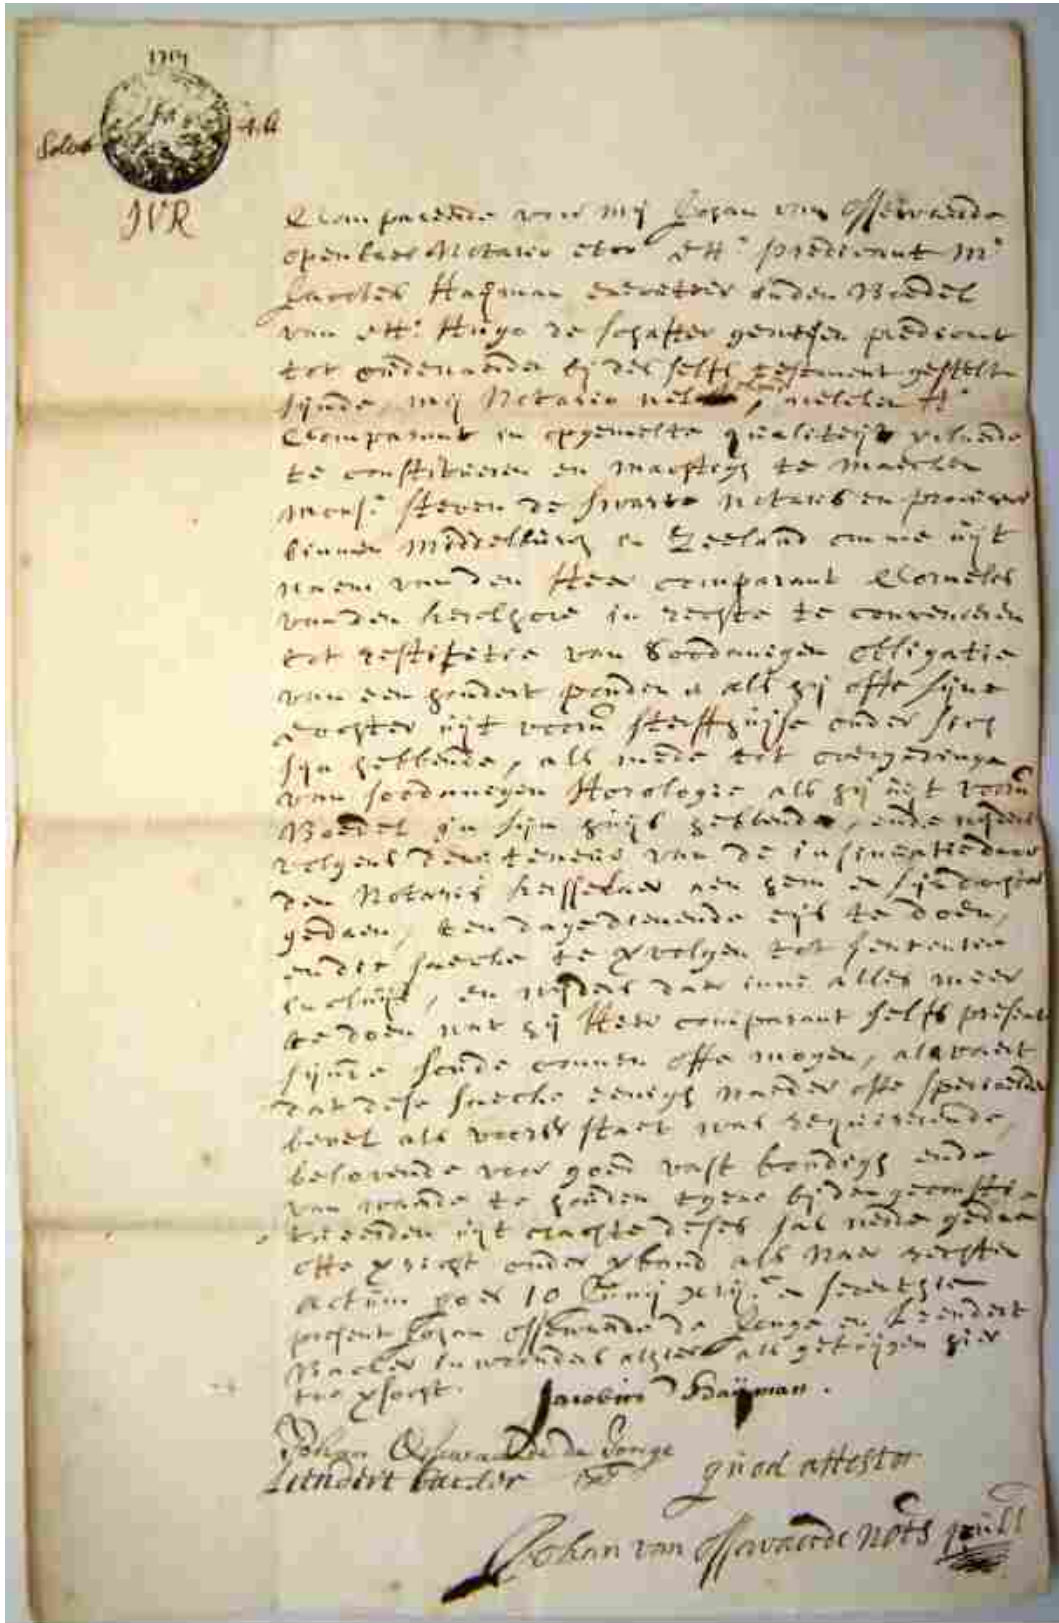 1714
Solvit 4.st
JVR
Compareerde voor mij Johan van Ossewaerde
openbaer Notaris etcr d'Hr predicant Mr
Jacobus Haijman executeur inden Boedel
van d'Hr Hugo de Schafter gewesen predicant
tot bij des selfs testament gestelt
sijnde, mij Notaris welcken Hr
Comparant in opgemelte qualiteijt
te constitueren en machtigh te maecken
Monsr Steven de Swarte Notaris en procureur
binnen Middelburgh in Zeeland omme uijt
Naem van den Heer comparant Cornelis
vanden kerckhove in rechte te convenieren
tot restitutie van soodanigen obligatie
van een hondert ponden als hij ofte sijne
dochter uijt voorn sterfhuijse onder sich
sijn hebbende, als mede tot overgevinge
van soodanigen Horologie als hij uijt voorn
Boedel in sijn huijs hebbende, ende wijders
volgens den teneur van de insinuatie door
den Notaris aen hem en sijn dochter
gedaen, ten dage dienende eijs te doen,
ende saecke te vervolgen tot sententie
incluijs, en wijders daer inne alles meer
te doen wat hij Heer comparant selfs present
sijnde soude connen ofte mogen, alwaert
dat dese saecke eenigh naeder ofte speciaelder
bevel als voorsr staet was requirerende,
belovende voor goed vast bondigh ende
van waerde te houden tgene bij den geconsti-
tueerden uijt crachte deses sal werde gedaen
ofte verricht onder verband als naer rechten
Actum goes 10 Junij xvijc en seventhien
present Johan Ossewaerde de Jonge en Leendert
Backer inwoonders alhier als getuijgen hier
toe versocht.
Jacobus Haijman.
Johan Ossewaerde de Jonge
Lendert backer
quod attestor
Johan van Ossewaerde Nots publ